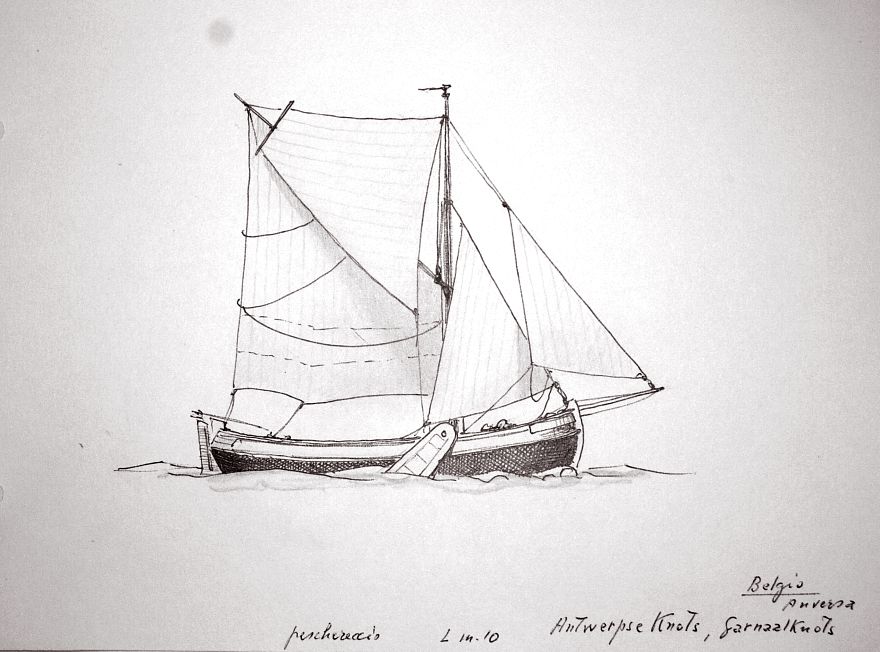 Belgio
Anversa
peschereccio L m. 10 Antwerpse Knots, Garnaalknots